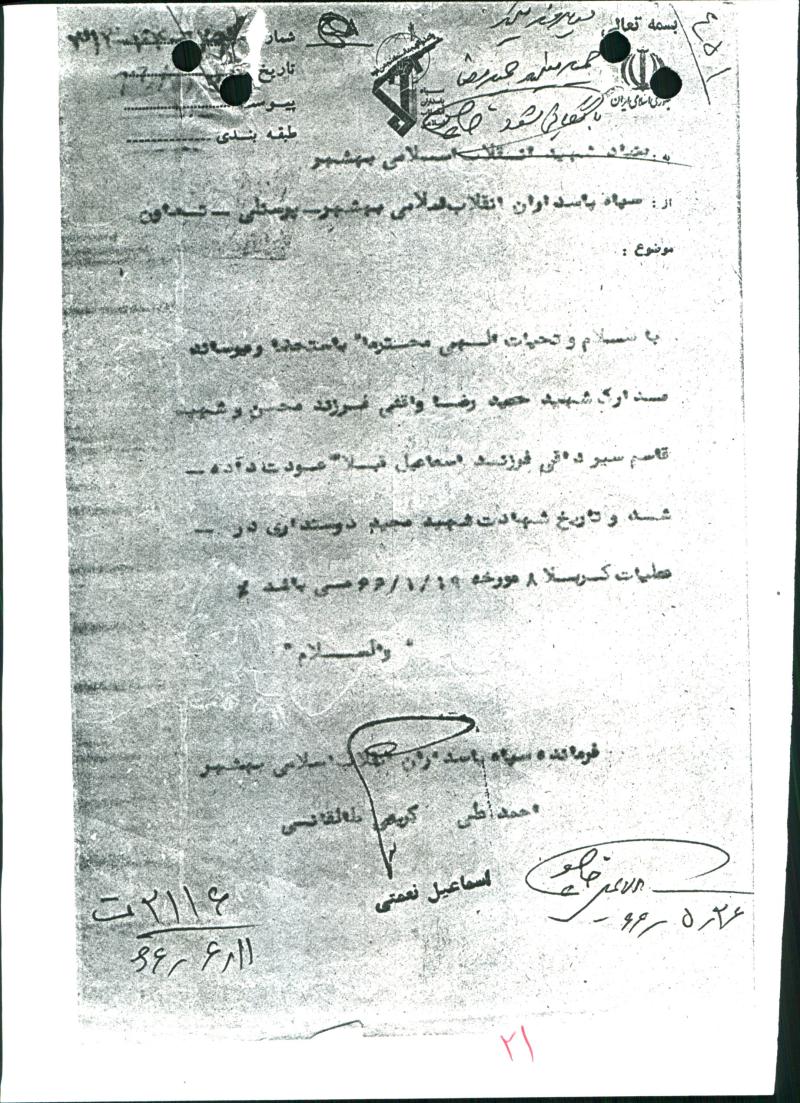 بسمه تعالی
جمهوری اسلامی ایران
شماره
تاریخ
پیوست
طبقه بندی
به: بنیاد شهید انقلاب اسلامی بهشهر
از: سپاه پاسداران انقلاب اسلامی بهشهر - پرسنلی - تعاون
موضوع :
با سلام و تحیات الهی محترما" باستحضار میرساند
مدارک شهید حمید رضا واقفی فرزند محسن و شهید
قاسم سیر داقی فرزند اسماعیل قبلا" عودت داده -
شد و تاریخ شهادت شهید محمد دوستداری در -
عملیات کربلا ۸ مورخه ۶۶/۱/۱۹ می باشد
" والسلام "
فرمانده سپاه پاسداران انقلاب اسلامی بهشهر
احمد علی کریمی طالقانی
اسماعیل نعمتی
۶۶/۵/۲۶
۲۱۱۶ ت
۶۶/۶/۱۱
۲۱